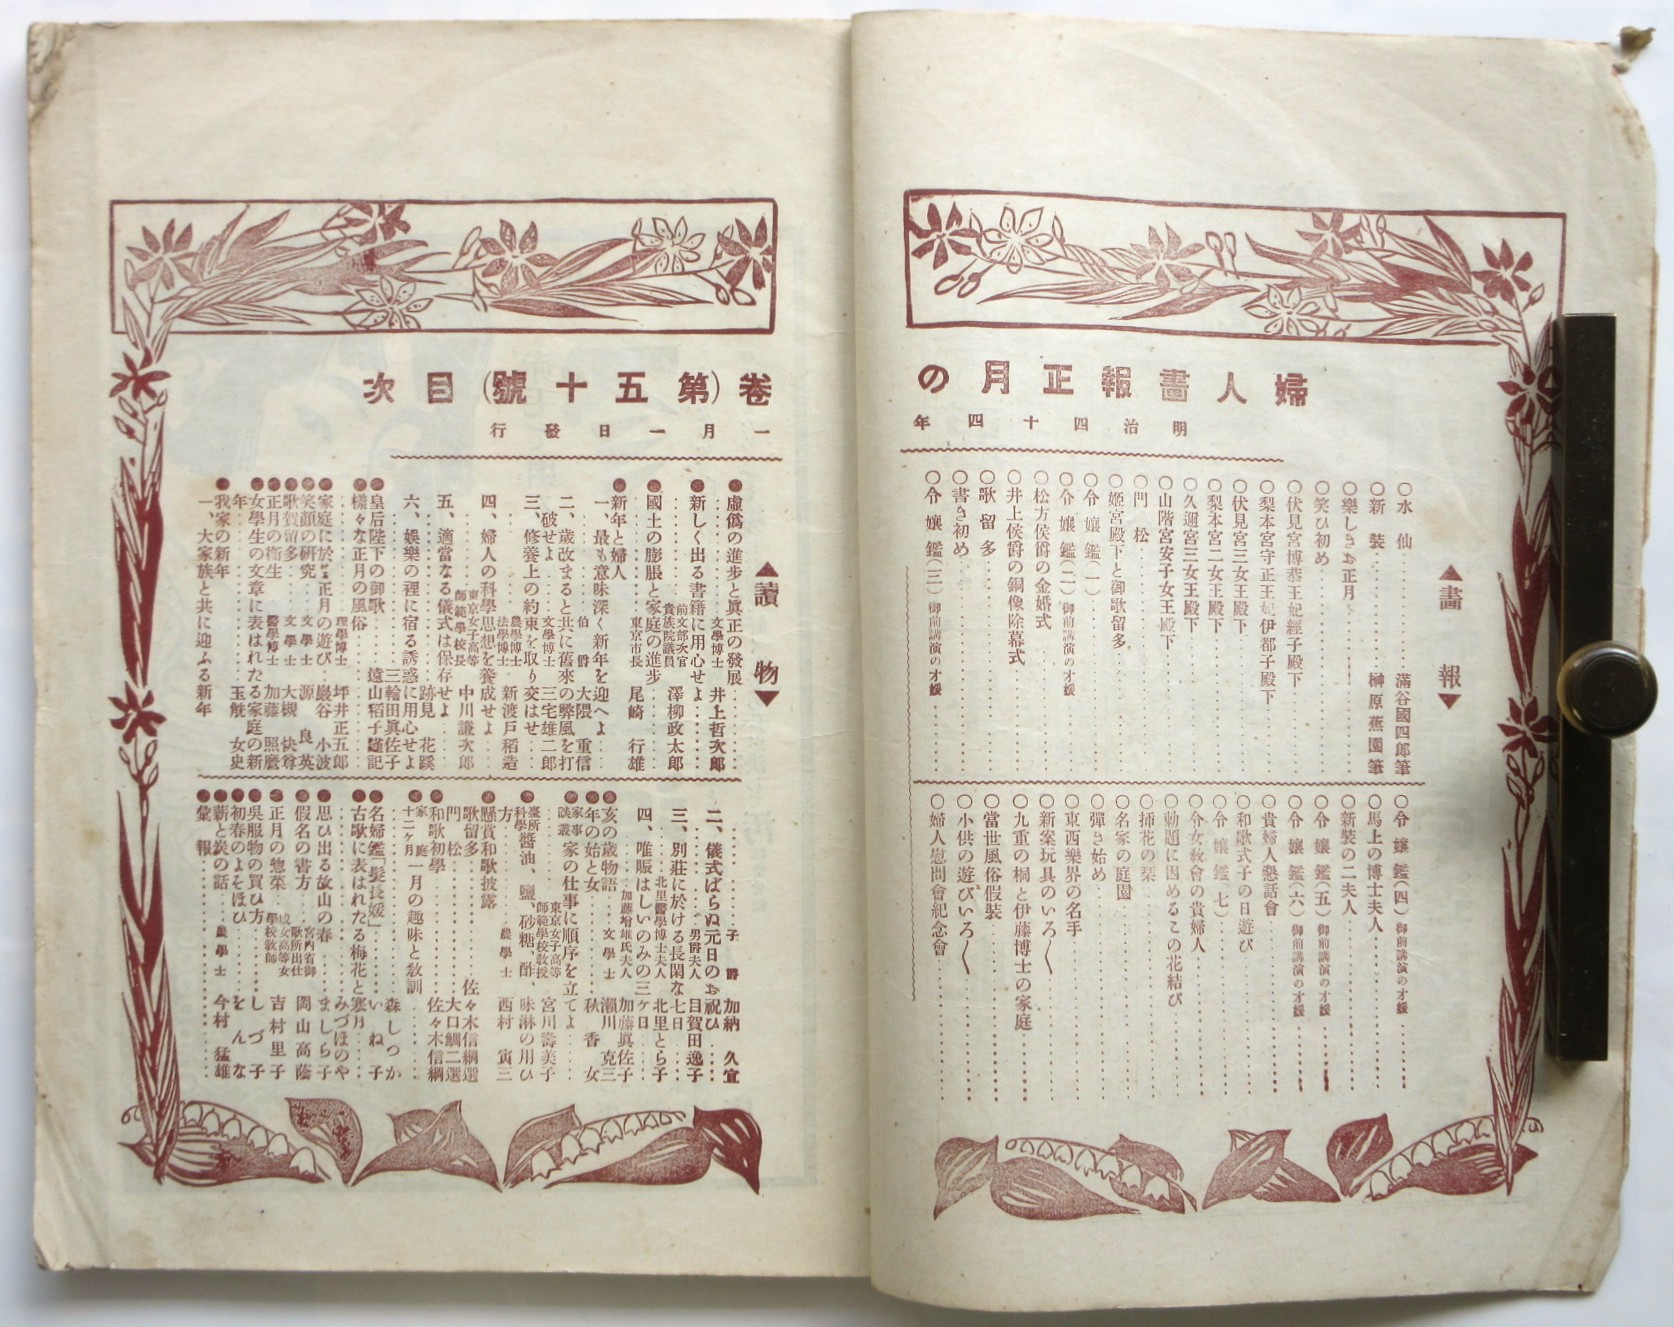 婦人畫報正月の卷(第五十號)目次
明治四十四年一月一日發行
▲畫報▼
○水仙 滿谷國四郎筆
○新裝 榊原蕉園筆
○樂しきお正月
○笑ひ初め
○伏見宮博恭王妃經子殿下
○梨本宮守正王妃伊都子殿下
○伏見宮三女王殿下
○梨本宮二女王殿下
○久邇宮三女王殿下
○山階宮安子女王殿下
○門松
○姬宮殿下と御歌留多
○令孃鑑(一)
○令孃鑑(二)御前講演の才媛
○松方侯爵の金婚式
○井上侯爵の銅像除幕式
○歌留多
○書き初め
○令孃鑑(三)御前講演の才媛
○令孃鑑(四)御前講演の才媛
○馬上の博士夫人
○新裝の二夫人
○令孃鑑(五)御前講演の才媛
○令孃鑑(六)御前講演の才媛
○貴婦人懇話會
○和歌式子の日遊び
○令孃鑑(七)
○令女敎會の貴婦人
○勅題に因めるこの花結び
○揷花の栞
○名家の庭園
○彈き始め
○東西樂界の名手
○新案玩具のいろ〱
○九重の桐と伊藤博士の家庭
○當世風俗假裝
○小供の遊びいろ〱
○婦人慰問會紀念會
▲讀物▼
●虛僞の進步と眞正の發展
文學博士 井上哲次郎
●新しく出る書籍に用心せよ
前文部次官 貴族院議員 澤柳政太郎
●國土の膨脹と家庭の進步
東京市長 尾崎行雄
●新年と婦人
一、最も意味深く新年を迎へよ
伯爵 大隈重信
二、歲改まると共に舊來の弊風を打破せよ
文學博士 三宅雄二郎
三、修養上の約束を取り交はせ
農學博士 法學博士 新渡戶稻造
四、婦人の科學思想を養成せよ
東京女子高等師範學校長 中川謙次郎
五、適當なる儀式は保存せよ
跡見花蹊
六、娛樂の裡に宿る誘惑に用心せよ
三輪田眞佐子
●皇后陛下の御歌 遠山稻子謹記
●樣々な正月の風俗
理學博士 坪井正五郎
●家庭に於ける正月の遊び 巖谷小波
●笑顏の硏究 文學士 源良英
●歌賀留多 文學士 大槻快尊
●正月の衞生 醫學博士 加藤照麿
●女學生の文章に表はれたる家庭の新年 玉舷女史
●我家の新年
一、大家族と共に迎ふる新年
子爵 加納久宜
二、儀式ばらぬ元日のお祝ひ
男爵夫人 目賀田逸子
三、別莊に於ける長閑な七日
北里醫學博士夫人 北里とら子
四、唯賑はしいのみの三ケ日
加藤增雄氏夫人 加藤眞佐子
●亥の歲物語 文學士 瀨川克三
●年の始と女 秋香女
●家事談叢 家の仕事に順序を立てよ
東京女子高等師範學校敎授 宮川壽美子
●臺所科學 醬油、鹽、砂糖、酢、味淋の用ひ方 農學士 西村寅三
●懸賞和歌披露
歌留多 佐々木信綱選
門松 大口鯛二選
●和歌初學 佐々木信綱
●家庭十二ケ月 一月の趣味と敎訓
森しつか
●名婦鑑「髮長媛」 いね子
●古歌に表はれたる梅花と寒月
みづほのや
●思ひ出る故山の春 ましら子
●假名の書方 宮內省御歌所出仕 岡山高蔭
●正月の惣菜 成女高等女學校敎師 吉村里子
●吳服物の買ひ方 しづ子
●初春のよそほひ をんな
●薪と炭の話 農學士 今村猛雄
●彙報